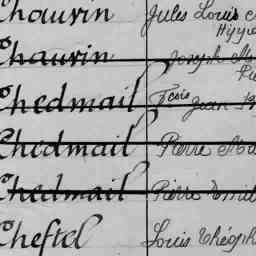 Chauvin Jules Louis
Chauvin Joseph
Chedmail Fcois Jean
Chedmail Pierre
Chedmail Pierre Emile
Cheftel Louis Théoph